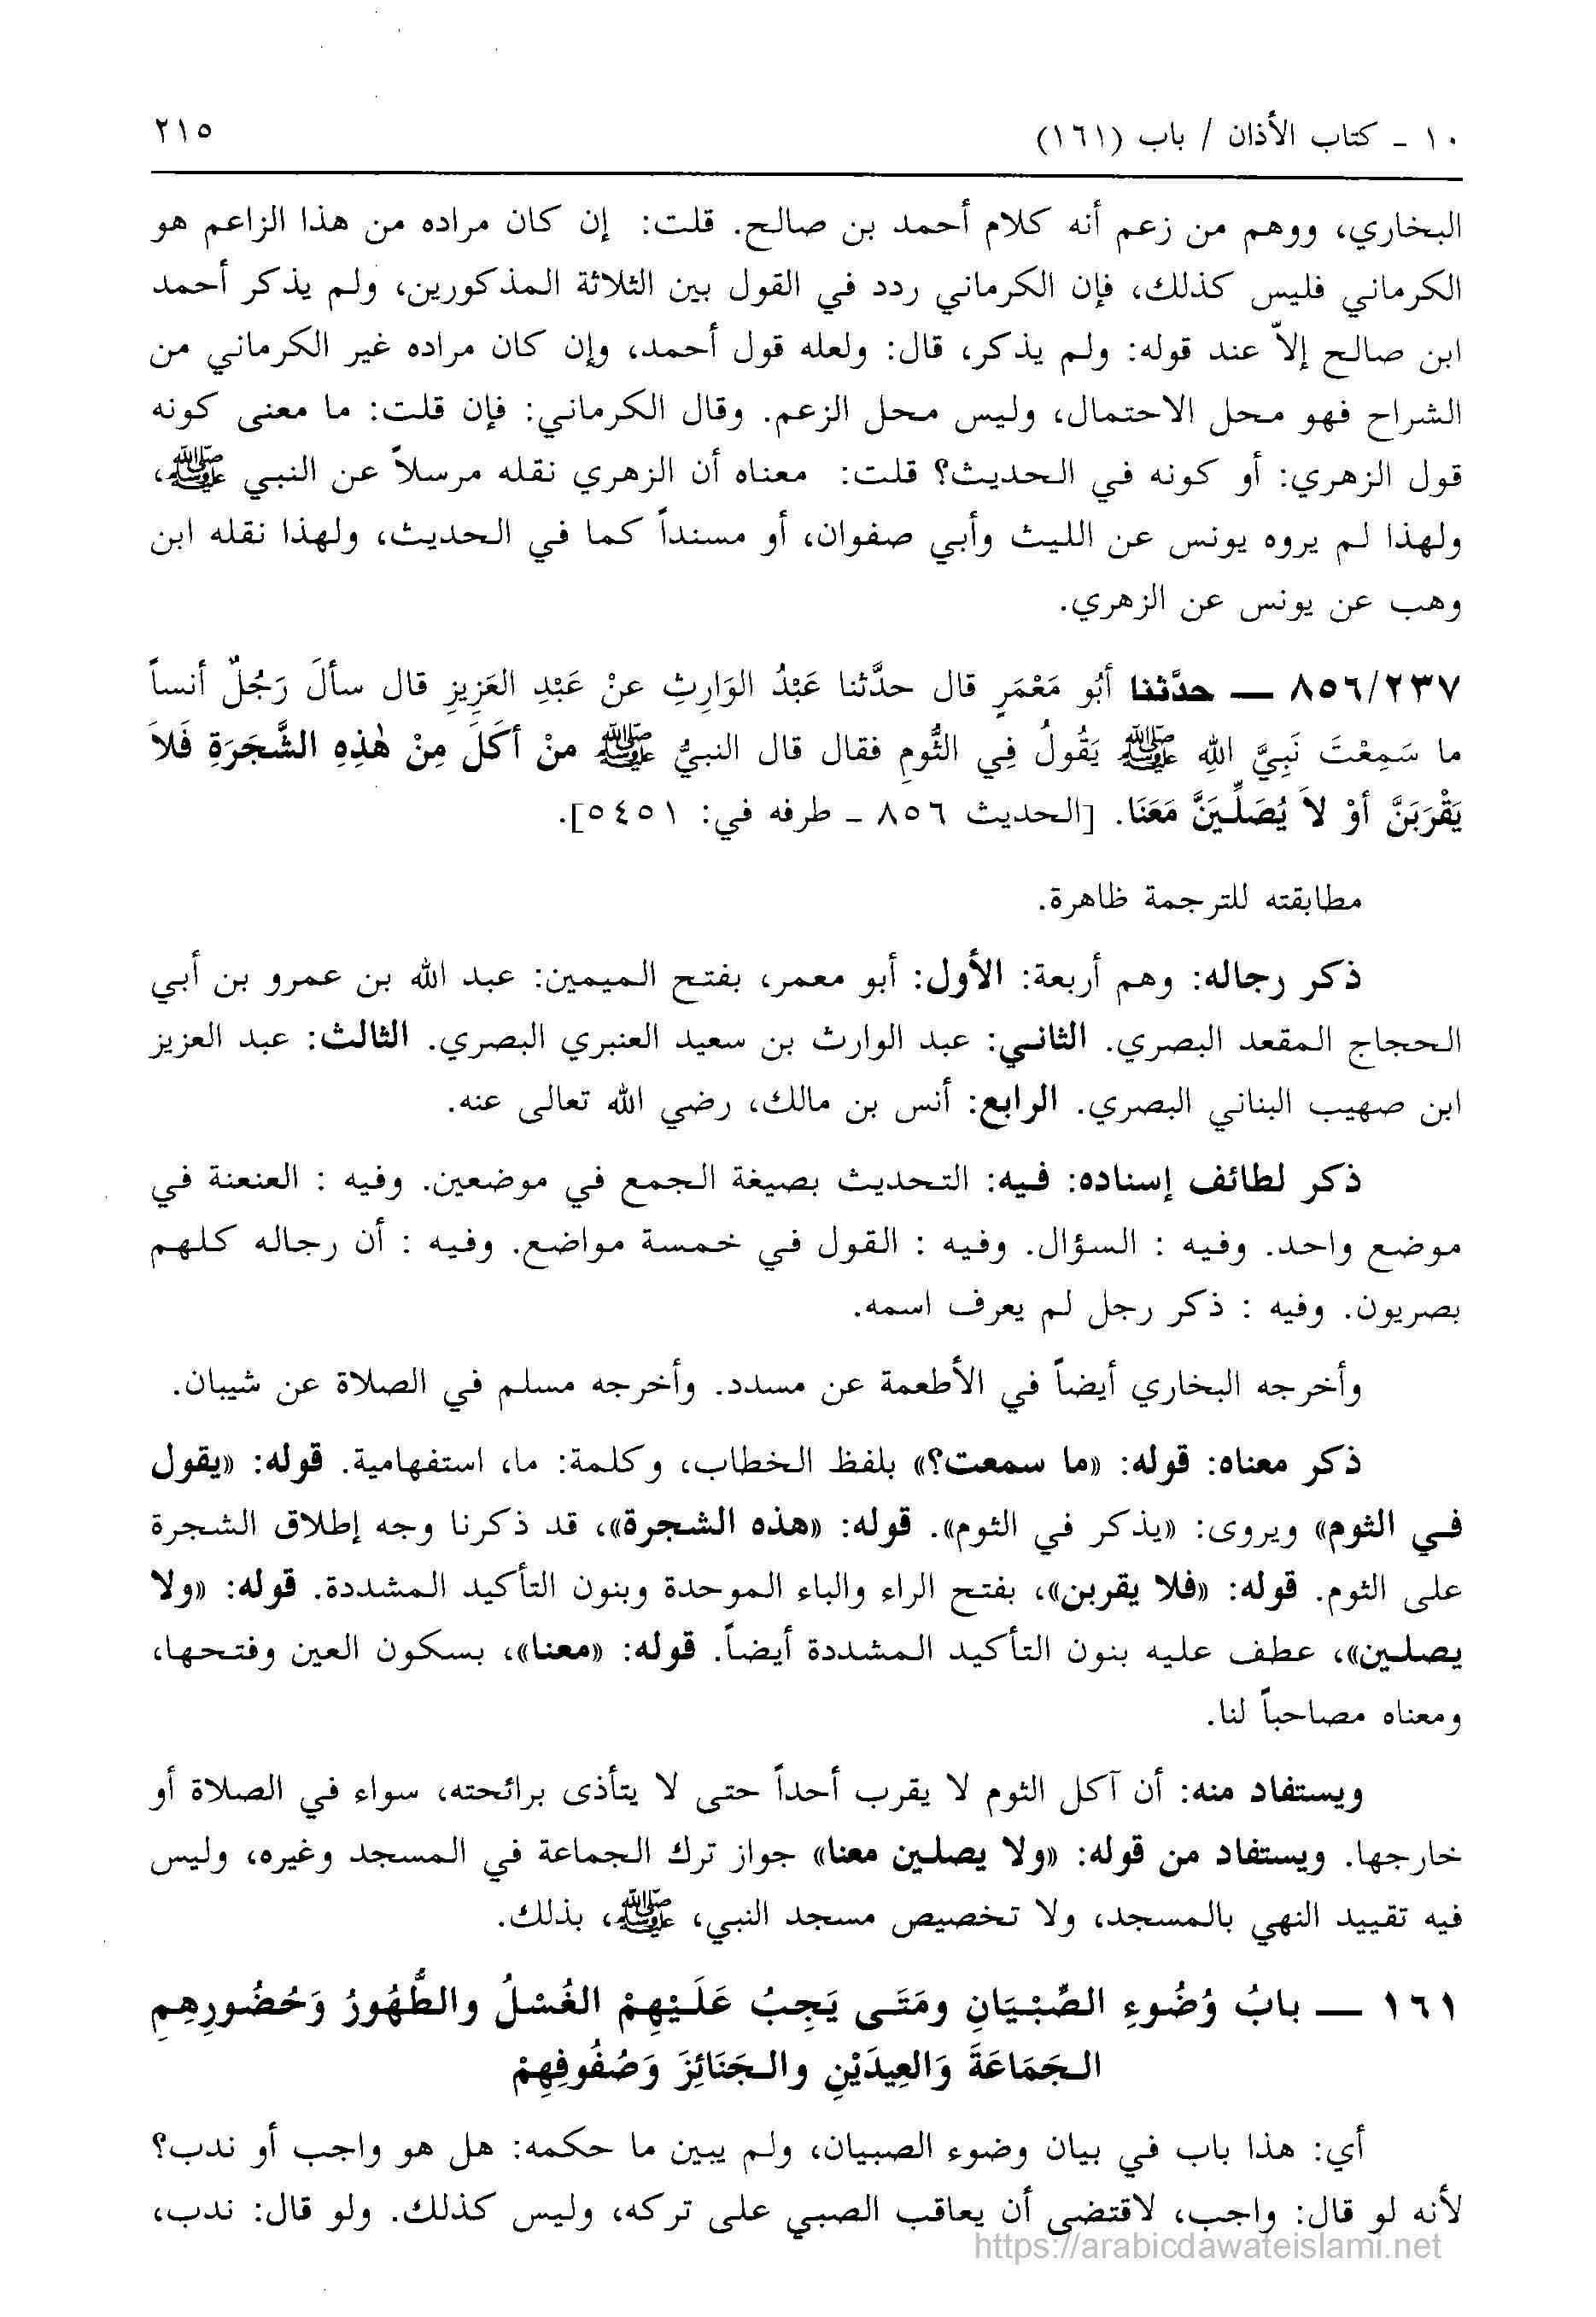 ١٠ ـ كتاب الأذان / باب (١٦١) ٢١٥
البخاري، ووهم من زعم أنه كلام أحمد بن صالح. قلت: إن كان مراده من هذا الزاعم هو
الكرماني فليس كذلك، فإن الكرماني ردد في القول بين الثلاثة المذكورين، ولم يذكر أحمد
ابن صالح إلاّ عند قوله: ولم يذكر، قال: ولعله قول أحمد، وإن كان مراده غير الكرماني من
الشراح فهو محل الاحتمال، وليس محل الزعم. وقال الكرماني: فإن قلت: ما معنى كونه
قول الزهري: أو كونه في الحديث؟ قلت: معناه أن الزهري نقله مرسلاً عن النبي ﷺ،
ولهذا لم يروه يونس عن الليث وأبي صفوان، أو مسنداً كما في الحديث، ولهذا نقله ابن
وهب عن يونس عن الزهري.
٨٥٦/٢٣٧ ـــ حدَّثنا أبُو مَعْمَرٍ قال حدَّثنا عَبْدُ الوَارِثِ عنْ عَبْدِ العَزِيزِ قال سألَ رَجُلٌ أنساً
ما سَمِعْتَ نَبِيَّ اللهِ ﷺ يَقُولُ فِي الثُّومِ فقال قال النبيُّ ﷺ منْ أكَلَ مِنْ هٰذِهِ الشَّجَرَةِ فَلاَ
يَقْرَبَنَّ أوْ لاَ يُصَلِّيَنَّ مَعَنَا. [الحديث ٨٥٦ ـ طرفه في: ٥٤٥١].
مطابقته للترجمة ظاهرة.
ذكر رجاله: وهم أربعة: الأول: أبو معمر، بفتح الميمين: عبد الله بن عمرو بن أبي
الحجاج المقعد البصري. الثاني: عبد الوارث بن سعيد العنبري البصري. الثالث: عبد العزيز
ابن صهيب البناني البصري. الرابع: أنس بن مالك، رضي الله تعالى عنه.
ذكر لطائف إسناده: فيه: التحديث بصيغة الجمع في موضعين. وفيه : العنعنة في
موضع واحد. وفيه : السؤال. وفيه : القول في خمسة مواضع. وفيه : أن رجاله كلهم
بصريون. وفيه : ذكر رجل لم يعرف اسمه.
وأخرجه البخاري أيضاً في الأطعمة عن مسدد. وأخرجه مسلم في الصلاة عن شيبان.
ذكر معناه: قوله: «ما سمعت؟» بلفظ الخطاب، وكلمة: ما، استفهامية. قوله: «يقول
في الثوم» ويروى: «يذكر في الثوم». قوله: «هذه الشجرة»، قد ذكرنا وجه إطلاق الشجرة
على الثوم. قوله: «فلا يقربن»، بفتح الراء والباء الموحدة وبنون التأكيد المشددة. قوله: «ولا
يصلين»، عطف عليه بنون التأكيد المشددة أيضاً. قوله: «معنا»، بسكون العين وفتحها،
ومعناه مصاحباً لنا.
ويستفاد منه: أن آكل الثوم لا يقرب أحداً حتى لا يتأذى برائحته، سواء في الصلاة أو
خارجها. ويستفاد من قوله: «ولا يصلين معنا» جواز ترك الجماعة في المسجد وغيره، وليس
فيه تقييد النهي بالمسجد، ولا تخصيص مسجد النبي، ﷺ، بذلك.
١٦١ ـــ بابُ وُضُوءِ الصِّبْيَانِ ومَتَى يَجِبُ عَلَيْهِمْ الغُسْلُ والطُّهُورُ وَحُضُورِهِمِ
الجَمَاعَةَ وَالعِيدَيْنِ والجَنَائِزَ وَصُفُوفِهِمْ
أي: هذا باب في بيان وضوء الصبيان، ولم يبين ما حكمه: هل هو واجب أو ندب؟
لأنه لو قال: واجب، لاقتضى أن يعاقب الصبي على تركه، وليس كذلك. ولو قال: ندب،
https://arabicdawateislami.net